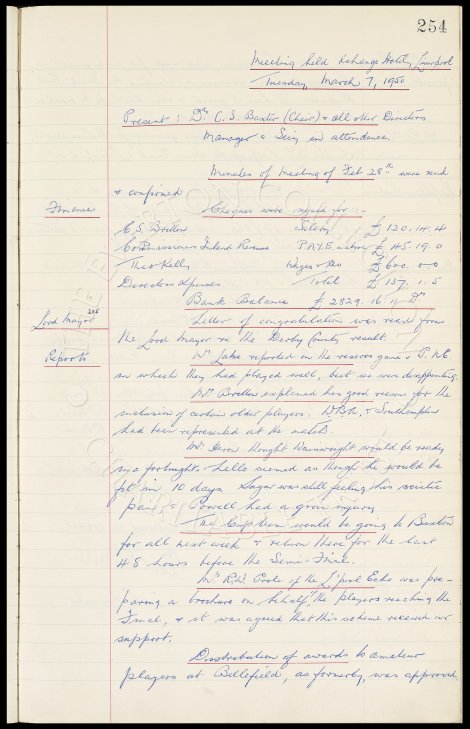 254
Meeting held Exchange Hotel, Liverpool
Tuesday, March 7, 1950
Present: Dr. C. S. Baxter (Chair) & all other Directors
Manager & Secy in attendance.
Minutes of Meeting of Feb 28th were read
& confirmed
Finance Cheques were signed for:-
C. S. Britton Salary £120. 14. 4
Commissioners Inland Revenue P.A.Y.E. £ 145. 19. 0
Theo Kelly Wages & £600. 0. 0
Directors Expenses Total £ 137. 1. 5
Bank Balance £ 2829. 16. 11 Dr
Lord Mayor Letter of congratulation was read from
the Lord Mayor re the Derby County result.
Reports Mr Lake reported on the reserve game v P.N.E
in which they had played well, but we were disappointing.
Mr Britton explained his good reasons for the
inclusion of certain older players. W.B.A. & Southampton
had been represented at the match.
Mr Heron thought Wainwright would be ready
in a fortnight & seemed as though he would be
fit in 10 days. was still feeling his sciatic
pain & Powell had a groin injury
The Cup team would be going to Buxton
for all next week & return there for the last
48 hours before the Semi-Final.
Mr R.H. of the L'pool Echo was pre-
paring a brochure on behalf of the players reaching the
Final, & it was agreed that this scheme receive our
support.
Distribution of awards to amateur
players at Bellefield, as formerly, was approved